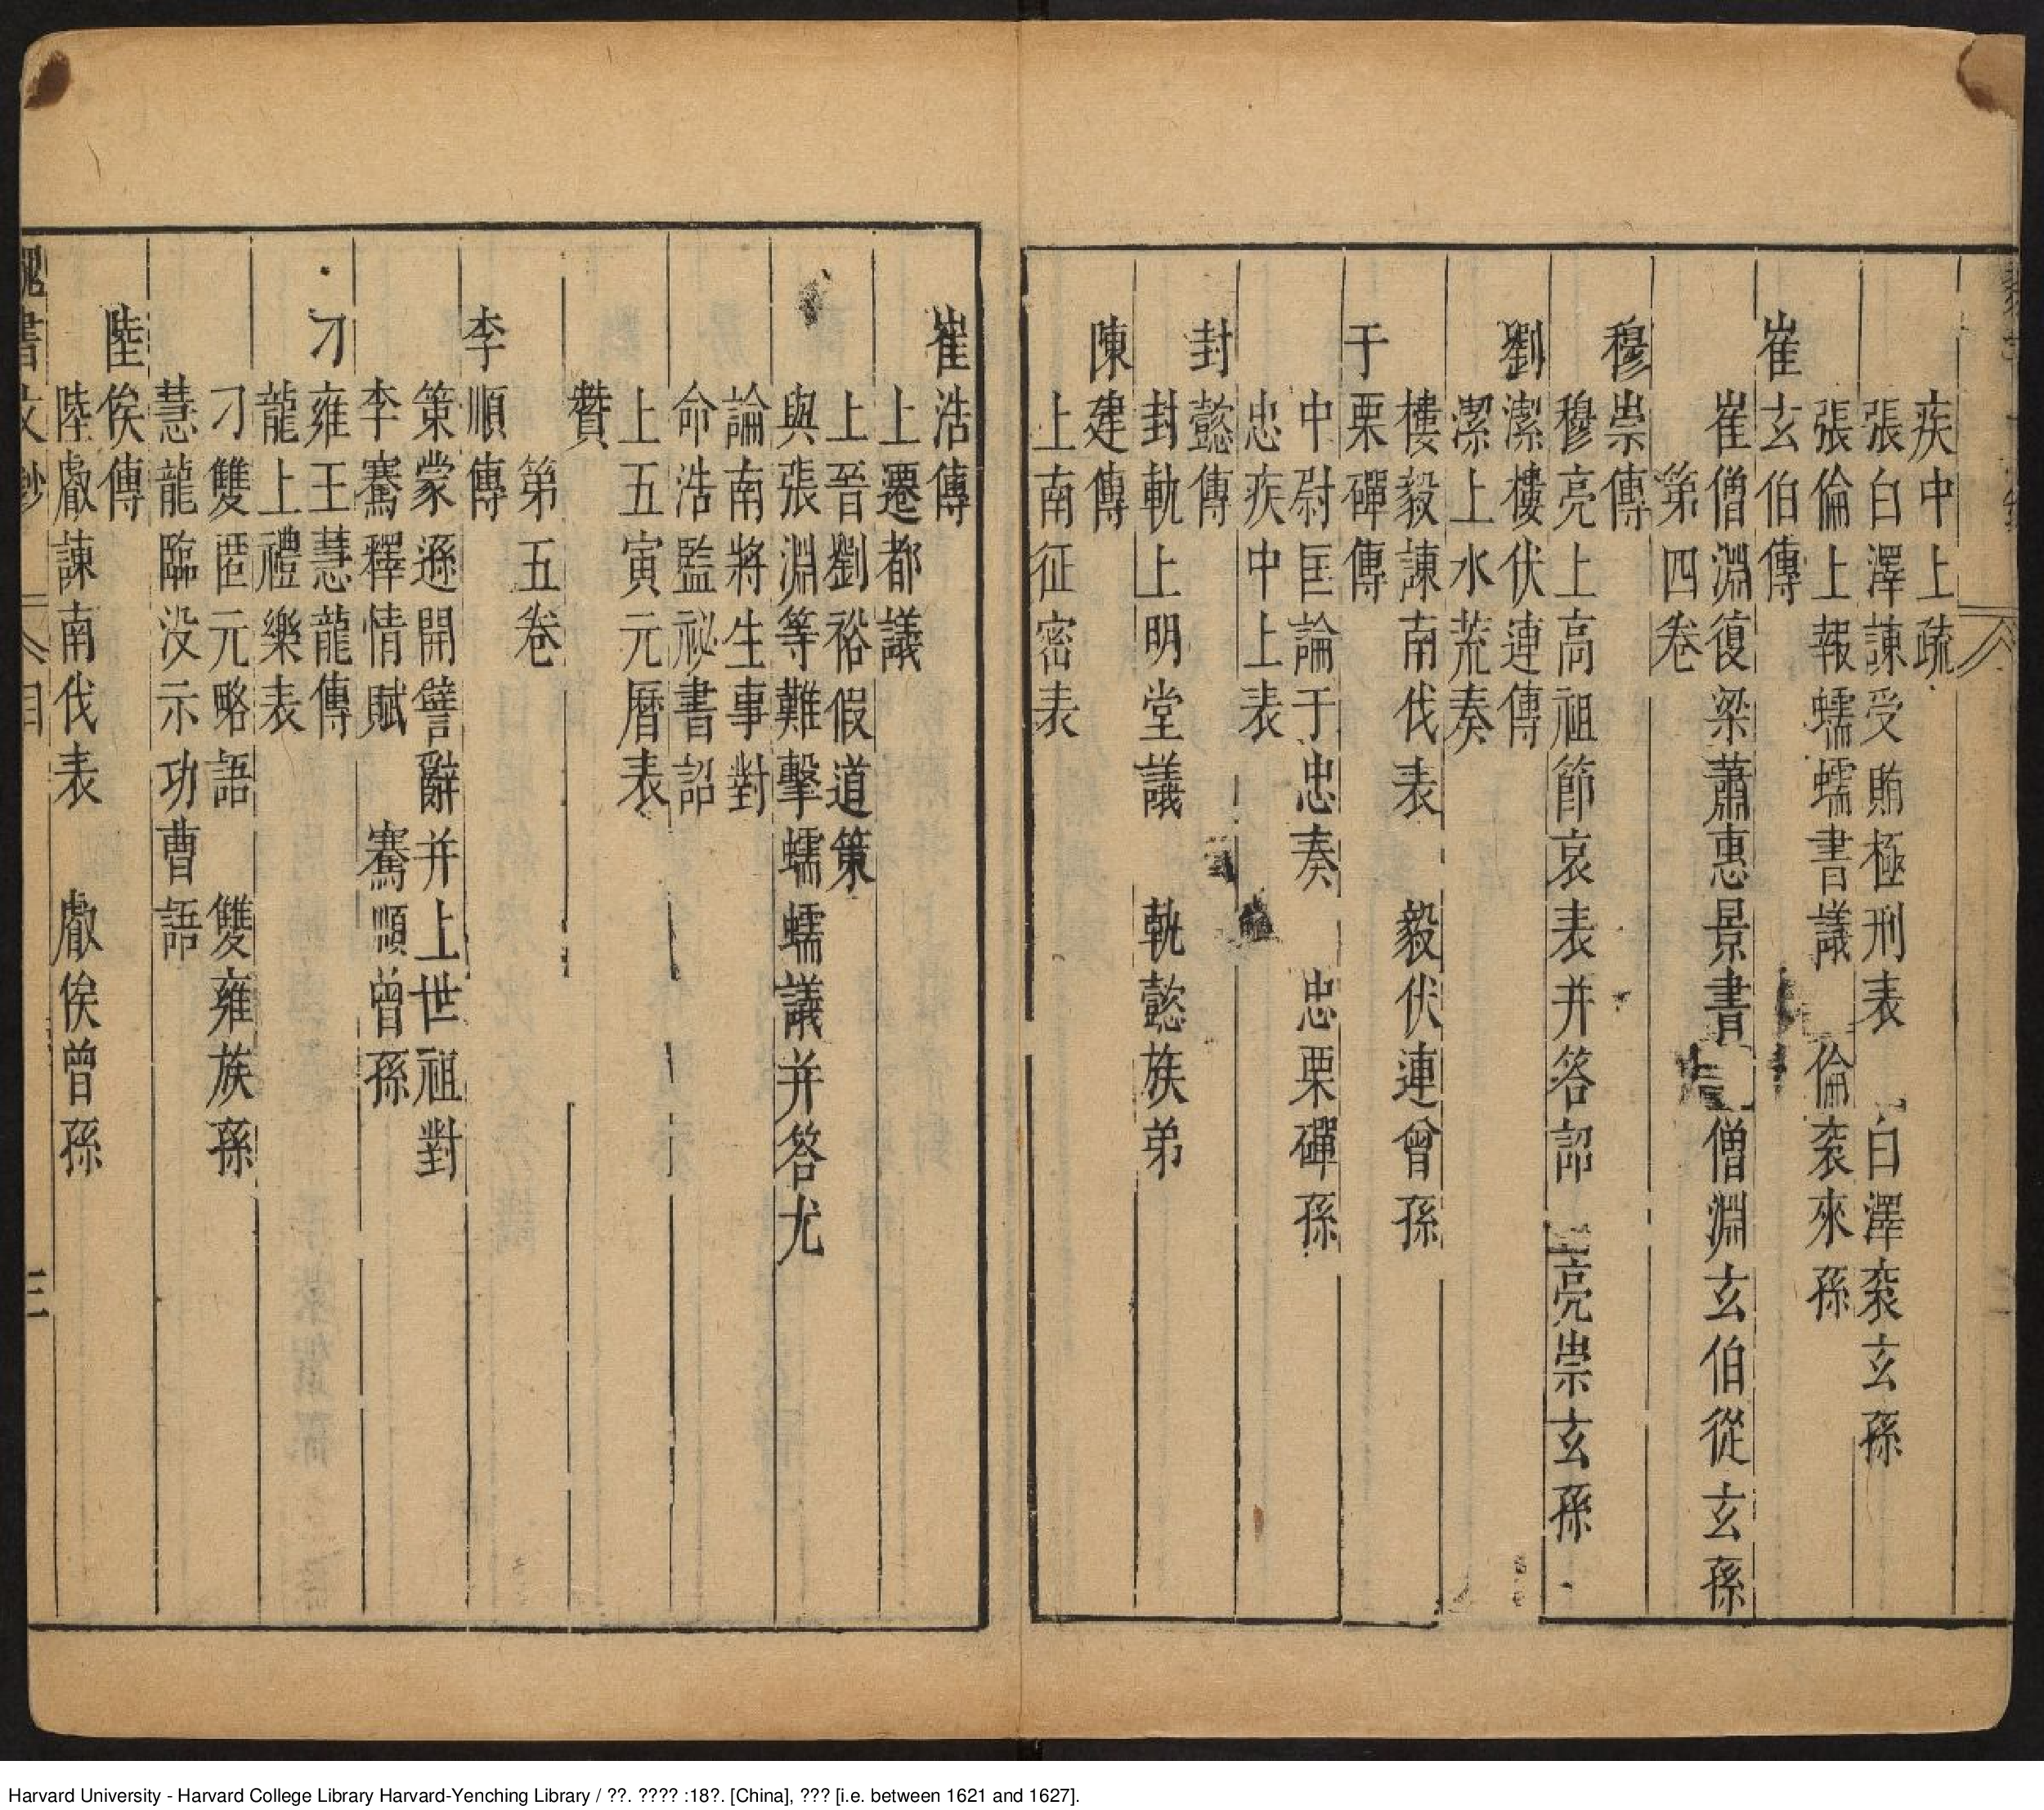 疾中上疏
張白澤諫受賄極刑表 白澤衮玄孫
張倫上報蠕蠕書議 倫衮來孫
崔玄伯傳
崔僧淵復梁蕭惠景書 僧淵玄伯從玄孫
第四卷
穆崇傳
穆亮上高祖節哀表并答詔 亮崇玄孫
劉潔樓伏連傳
潔上水荒奏
樓毅諫南伐表 毅伏連曾孫
于栗磾傳
中尉匡論于忠奏 忠栗磾孫
忠疾中上表
封懿傳
封軌上明堂議 軌懿族弟
陳建傳
上南征密表
崔浩傳
上遷都議
上晉劉裕假道策
與張淵等難擊蠕蠕議并答尤
論南將生事對
命浩監祕書詔
上五寅元曆表
贊
第五卷
李順傳
策蒙遜開譬辭并上世祖對
李騫釋情賦 騫順曾孫
刁雍王慧龍傳
龍上禮樂表
刁雙匿元略語 雙雍族孫
慧龍臨没示功曹語
陸俟傳
陸叡諫南伐表 叡俟曾孫
魏書文鈔 目 三